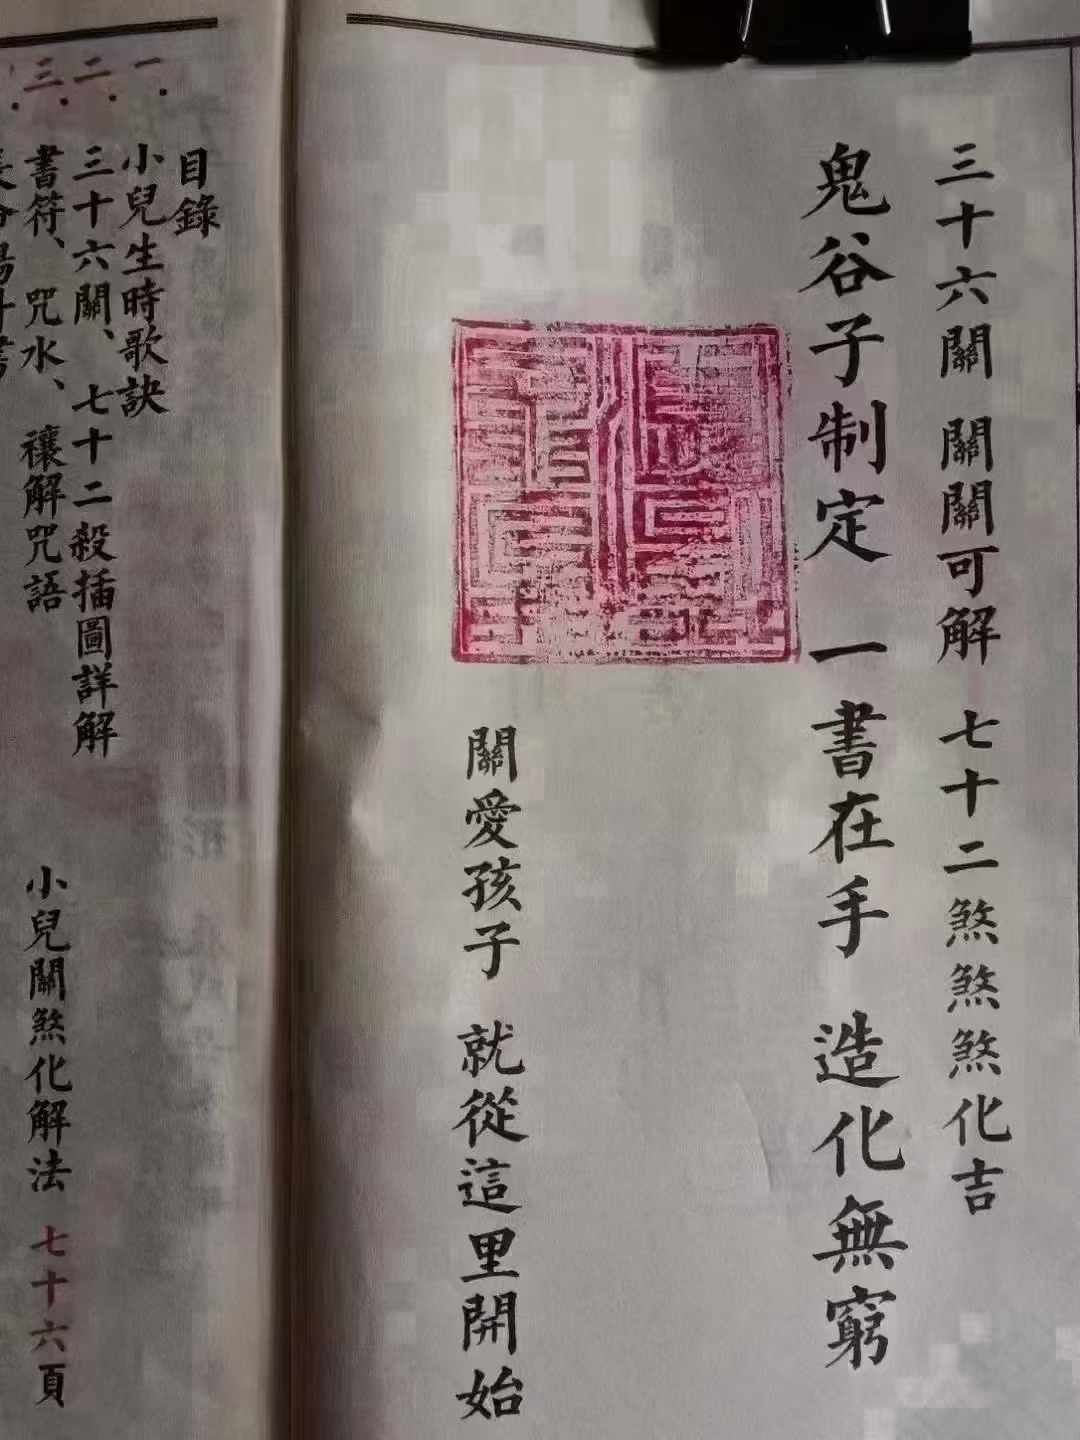 三十六關 關關可解 七十二煞煞煞化吉
鬼谷子制定 一書在手 造化無窮
關愛孩子 就從這里開始
目錄
一．小兒生時歌訣
二．三十六關、七十二殺插圖詳解
三．書符、咒水、禳解咒語
小兒關煞化解法 七十六頁